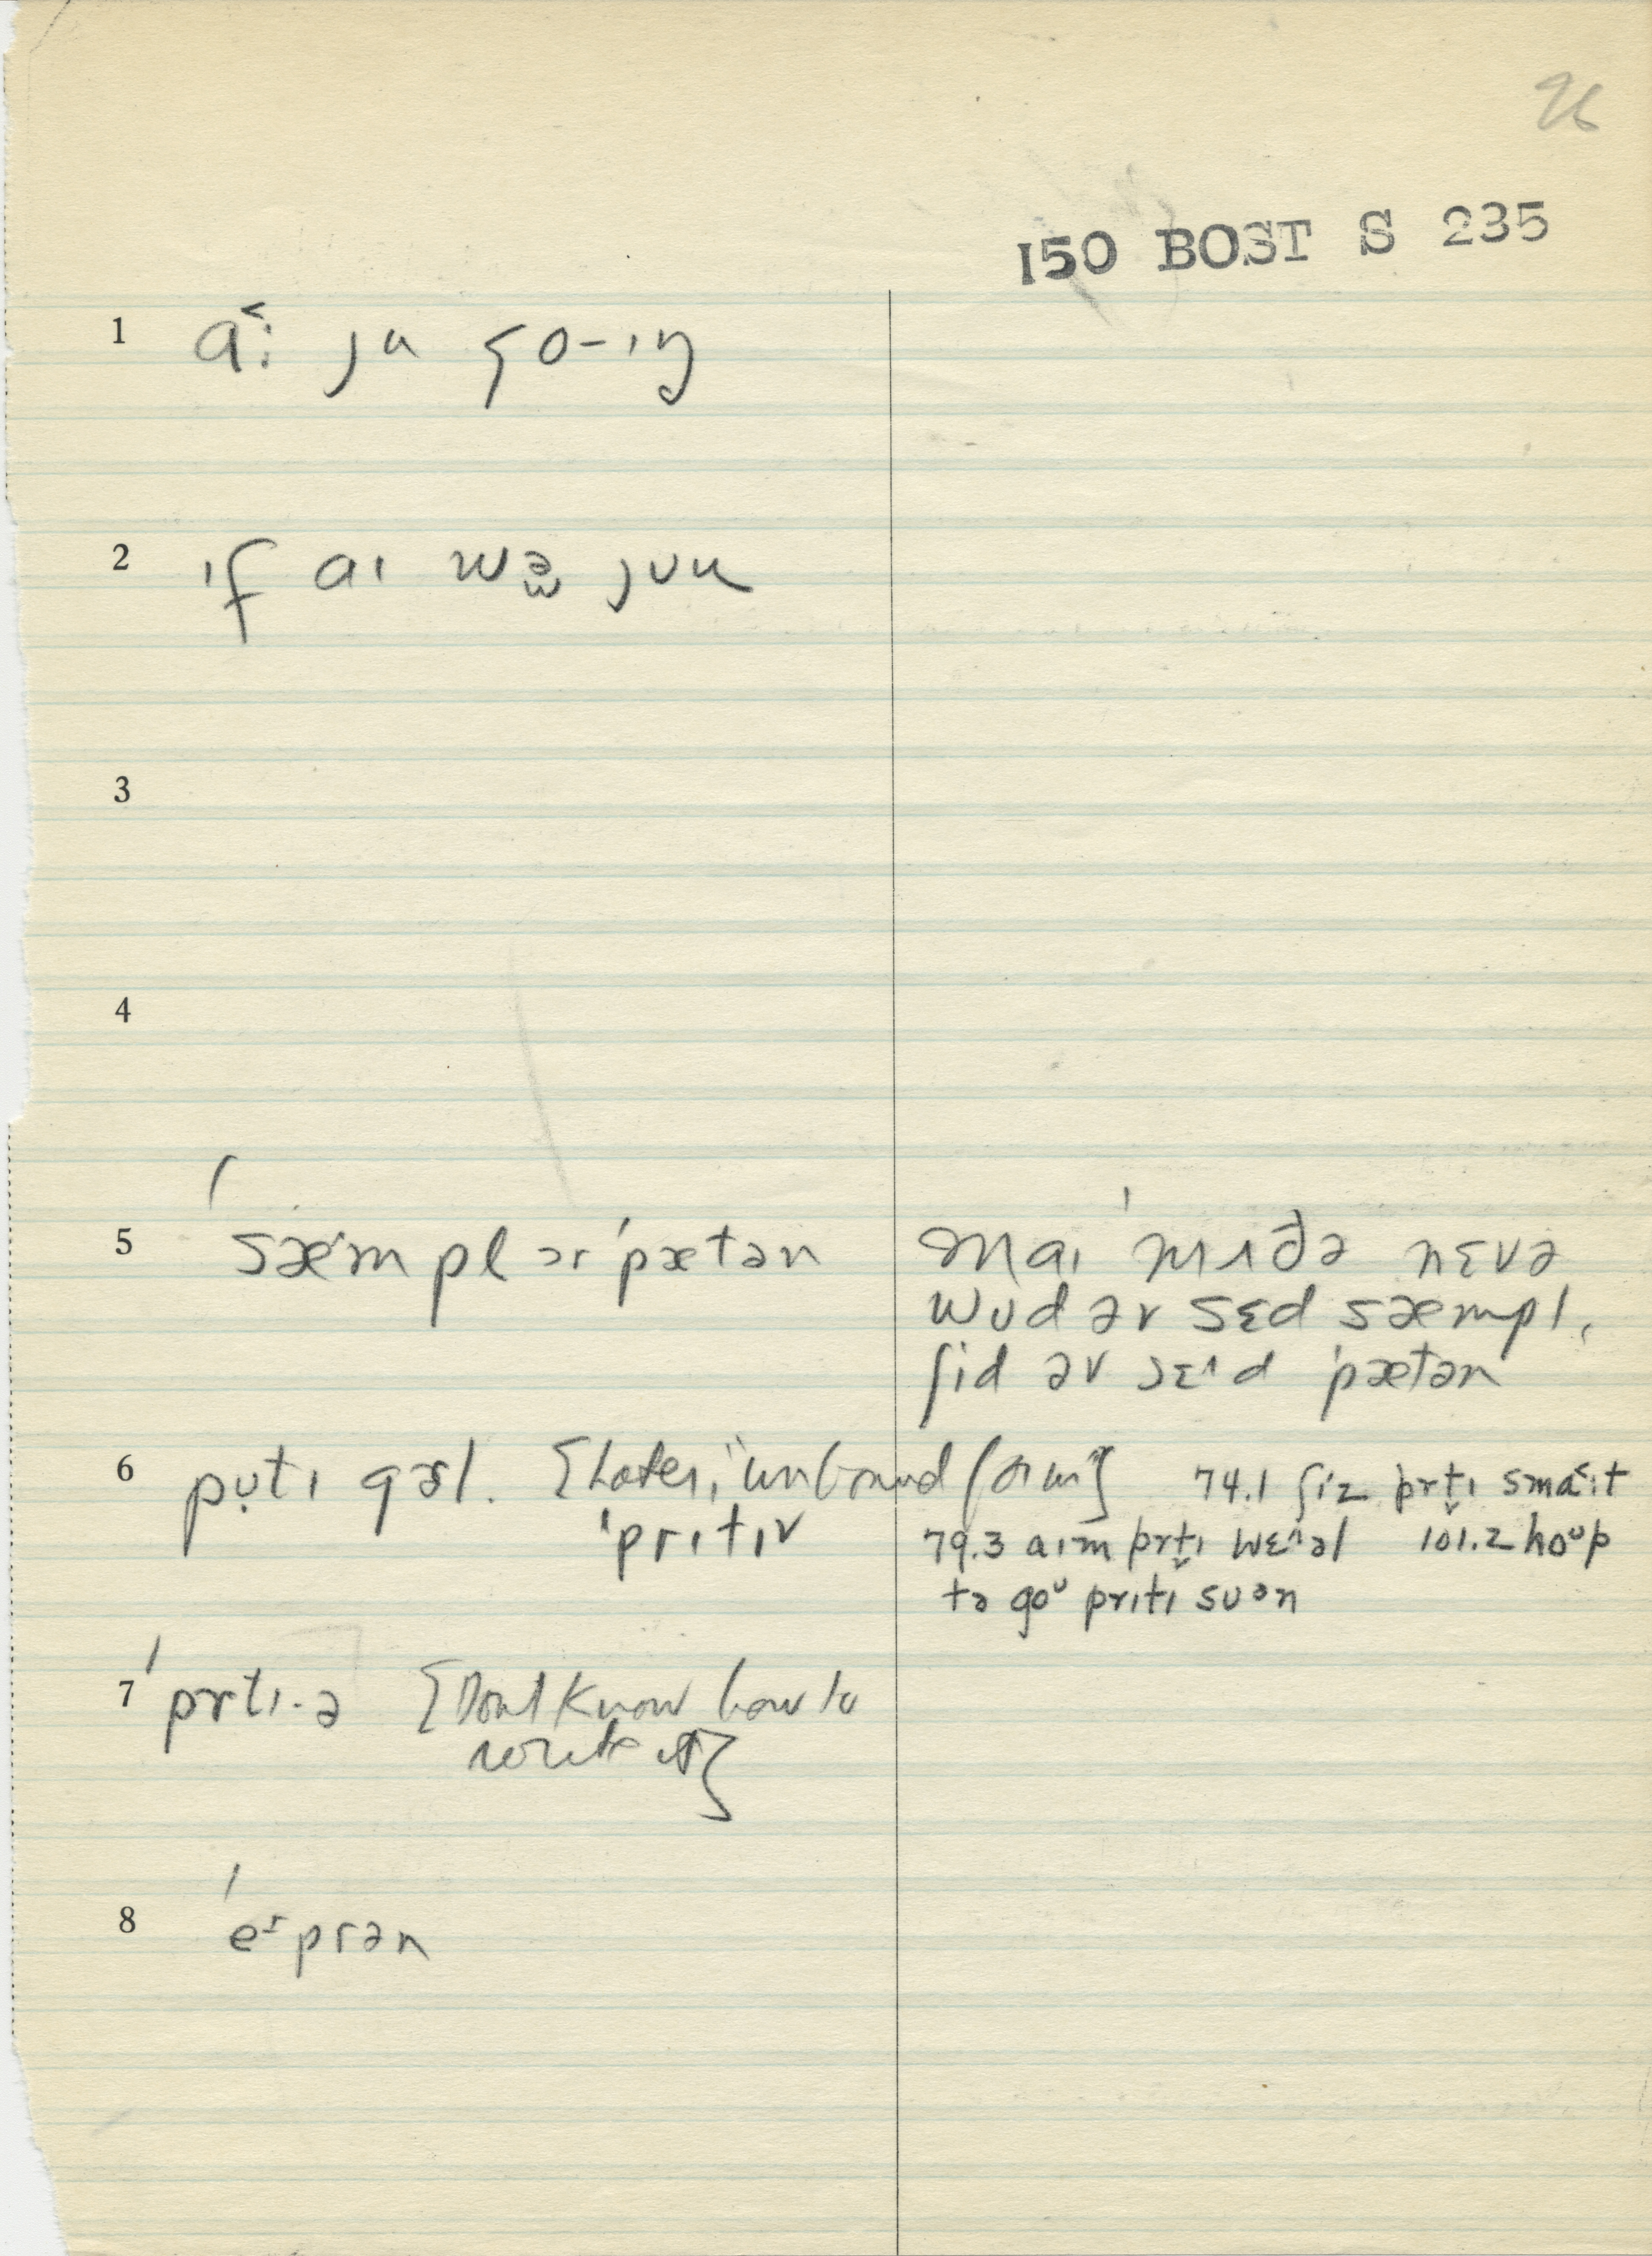 26
150 BOST S 235
1 a˂: ju go-ɪŋ
2 ɪf aɪ wə̯ juu
3
4
5 ˈsæmpl ər ˈpætən
maɪ ˈmʌðə nɛvə
wʊd əv sɛd sæmpl,
ʃid əv sɛ^d ˈpætən
6 pʊ̣tɪ gəl. {Later, "unbound form"}
ˈprɪtɪ
74.1 ʃiz prt̬ɪ sma˂:t
79.3 aɪm prt̬ɪ wɛ^əl 101.2 hoᵘp
tə goᵘ prɪtɪ suən
7 ˈprtɪ-ə {Dont know how to
write it}
8 ˈeɪprən